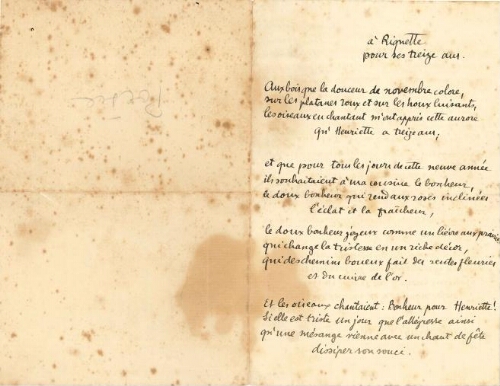 à Riquette
pour ses treize ans.
Aux bois que la douceur de novembre colore,
sur les platanes roux et sur les houx luisants,
les oiseaux en chantant m'ont appris cette aurore
qu'Henriette a treize ans,
et que pour tous les jours de cette neuve année
ils souhaitaient à ma cousine le bonheur,
le doux bonheur qui rend aux roses inclinées
l'éclat et la fraîcheur,
le doux bonheur joyeux comme un lièvre aux prairies
qui change la tristesse en un riche décor,
qui des chemins boueux fait des sentes fleuries
et du cuivre de l'or.
Et les oiseaux chantaient : Bonheur pour Henriette !
Si elle est triste un jour que l'allégresse ainsi
qu'une mésange vienne avec un chant de fête
dissiper son souci.